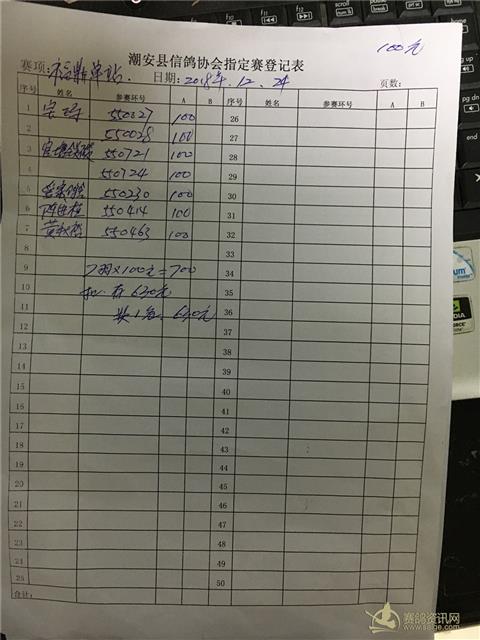 100元
潮安县信鸽协会指定赛登记表
赛项: 单站 日期: 2018年.12.24 页数:
序号 姓名 参赛环号 A B 序号 姓名 参赛环号 A B
1 550327 100 26
2 550028 100 27
3 550721 100 28
4 550724 100 29
5 550230 100 30
6 550414 100 31
7 550463 100 32
8 33
9 7羽×100元=700 34
10 630元 35
11 奖1名. 630元 36
12 37
13 38
14 39
15 40
16 41
17 42
18 43
19 44
20 45
21 46
22 47
23 48
24 49
25 50
合计:
赛鸽资讯网
www.saige.com